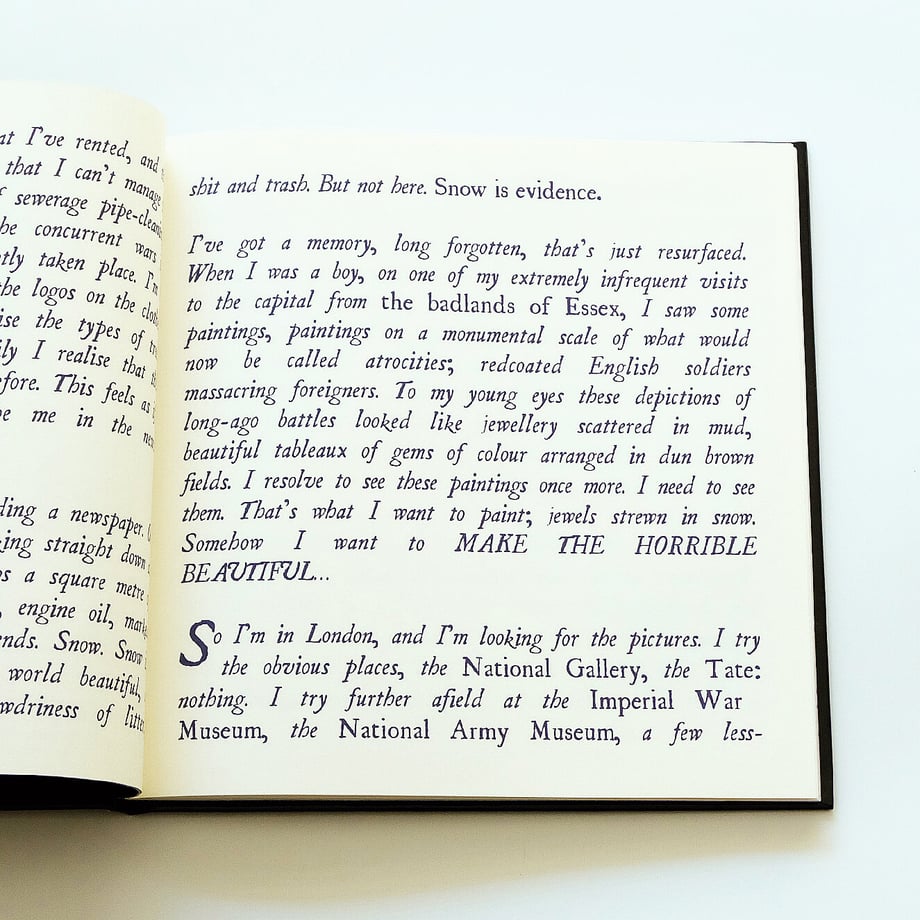 at I've rented, and
that I can't manage
sewerage pipe-cleani
he concurrent wars
tly taken place. I'm
the logos on the clot
ise the types of
ily I realise that
fore. This feels as
me in the
ding a newspaper.
ing straight down
s a square metre
engine oil,
ends. Snow. Snow
world beautiful,
wdriness of litter
shit and trash. But not here. Snow is evidence.
I've got a memory, long forgotten, that's just resurfaced.
When I was a boy, on one of my extremely infrequent visits
to the capital from the badlands of Essex, I saw some
paintings, paintings on a monumental scale of what would
now be called atrocities; redcoated English soldiers
massacring foreigners. To my young eyes these depictions of
long-ago battles looked like jewellery scattered in mud,
beautiful tableaux of gems of colour arranged in dun brown
fields. I resolve to see these paintings once more. I need to see
them. That's what I want to paint; jewels strewn in snow.
Somehow I want to MAKE THE HORRIBLE
BEAUTIFUL...
So I'm in London, and I'm looking for the pictures. I try
the obvious places, the National Gallery, the Tate:
nothing. I try further afield at the Imperial War
Museum, the National Army Museum, a few less-